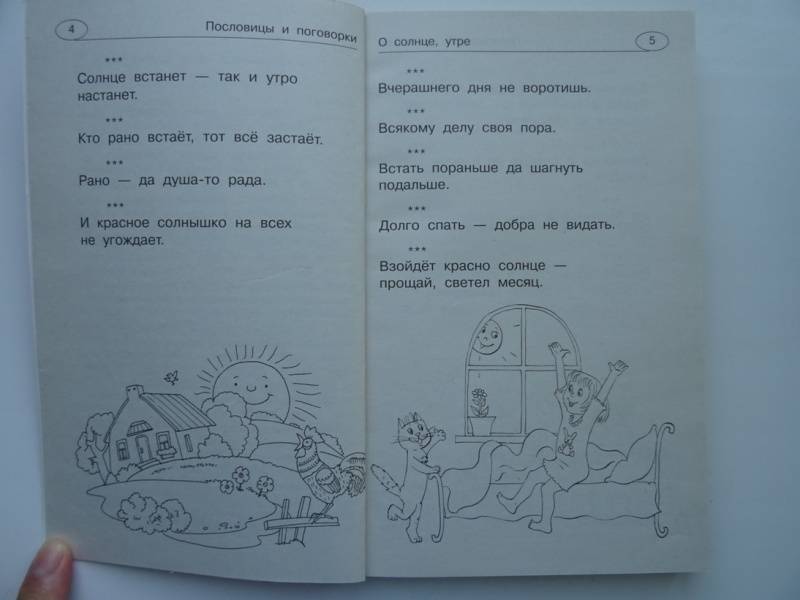 4
Пословицы и поговорки
***
Солнце встанет — так и утро
настанет.
***
Кто рано встаёт, тот всё застаёт.
***
Рано — да душа-то рада.
***
И красное солнышко на всех
не угождает.
О солнце, утре
5
***
Вчерашнего дня не воротишь.
***
Всякому делу своя пора.
***
Встать пораньше да шагнуть
подальше.
***
Долго спать — добра не видать.
***
Взойдёт красно солнце —
прощай, светел месяц.